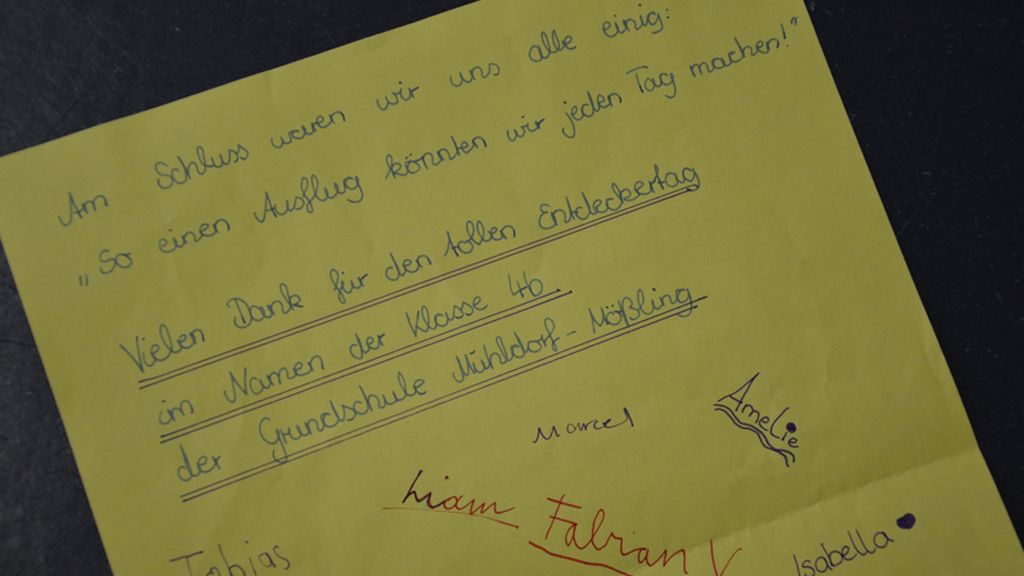 Am Schluss waren wir uns alle einig:
„So einen Ausflug könnten wir jeden Tag machen!"
Vielen Dank für den tollen Entdeckertag
im Namen der Klasse 4b
der Grundschule Mühldorf-Mößling
Marcel
Amelie
Liam
Fabian V
Isabella
Tobias